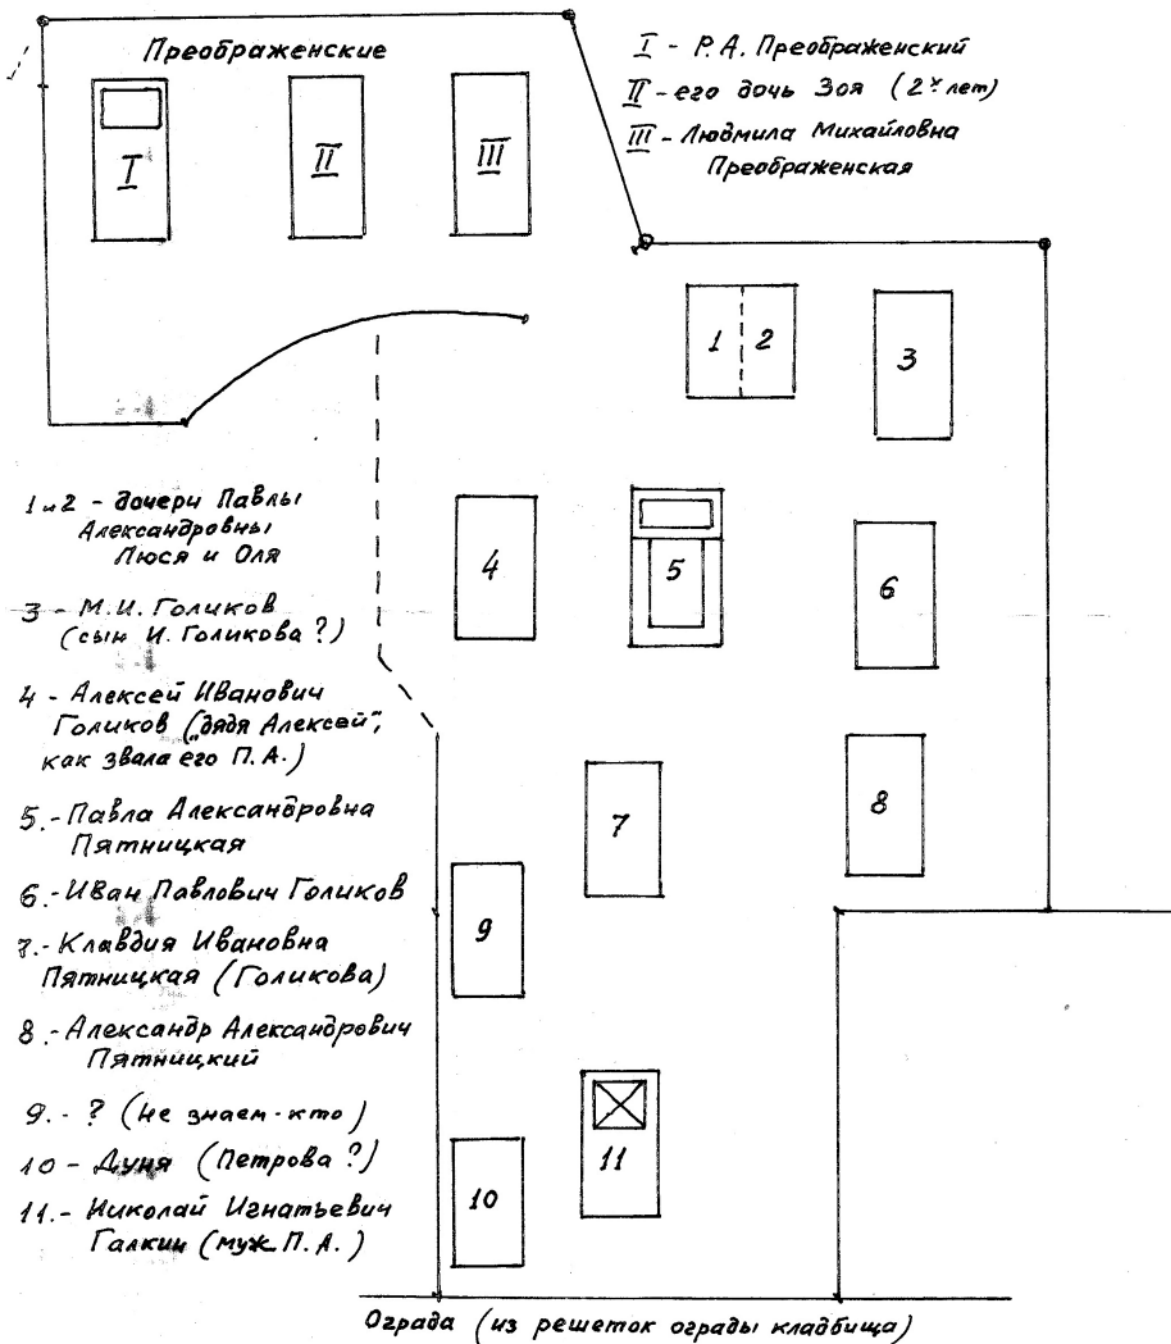 Преображенские
I - Р.А. Преображенский
II - его дочь Зоя (2х лет)
III - Людмила Михайловна
Преображенская
I
II
III
1
2
3
1 и 2 - дочери Павлы
Александровны
Люся и Оля
3 - М.И. Голиков
(сын И. Голикова ?)
4 - Алексей Иванович
Голиков („дядя Алексей",
как звала его П.А.)
5.- Павла Александровна
Пятницкая
6.- Иван Павлович Голиков
7.- Клавдия Ивановна
Пятницкая (Голикова)
8.- Александр Александрович
Пятницкий
9.- ? (Не знаем - кто)
10 - Дуня (Петрова ?)
11.- Николай Игнатьевич
Галкин (муж П.А.)
4
5
6
7
8
9
10
11
Ограда (из решеток ограды кладбища)